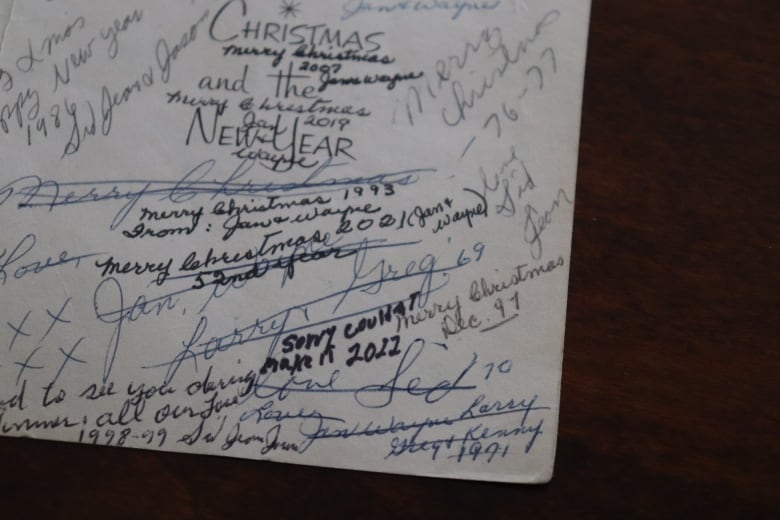 Jan & Wayne
Happy New Year
1986
Sid Jean & Jason
CHRISTMAS
Merry Christmas
2007
Jan & Wayne
and the
Merry Christmas
Jan 2019
NEW YEAR
Wayne
Merry Christmas
'76-77
Love
Sid
Jean
Merry Christmas
Merry Christmas 1993
From: Jan & Wayne
Merry Christmas 2021 (Jan & Wayne)
52nd year
Love,
Jan,
Larry, Greg. 69
XX
XX
Merry Christmas
Dec. 97
Sorry couldn't
make it 2022
Love Sid 70
to see you during
all our love
1998-99 Sid Jean
Love,
Jan Wayne Larry
Greg & Kenny
1971